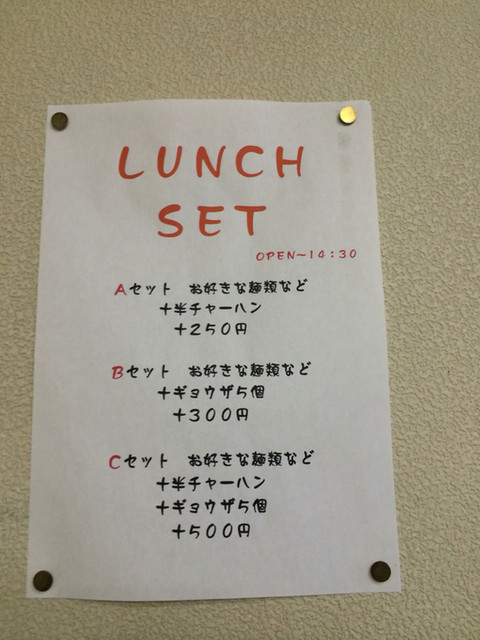 LUNCH
SET
OPEN~14:30
Aセット お好きな麺類など
+半チャーハン
+250円
Bセット お好きな麺類など
+ギョウザ5個
+300円
Cセット お好きな麺類など
+半チャーハン
+ギョウザ5個
+500円